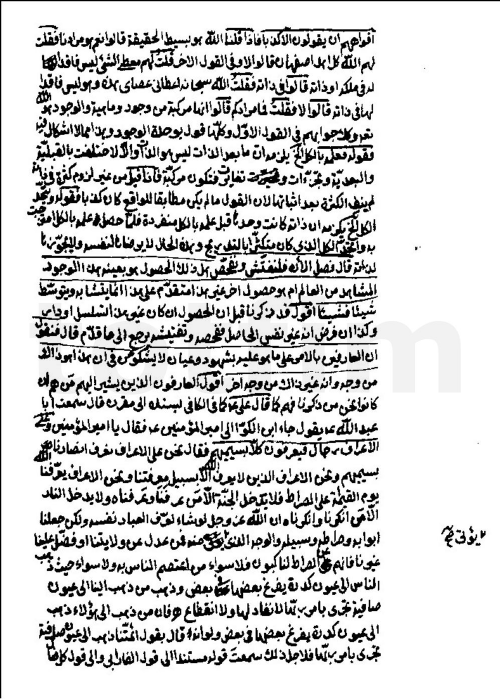 افواههم ان يقولون الا كذبا فاذا قلنا الله هو بسيط الحقيقة قالوا نعم هو مرادنا فقلت
لهم الله كل ما صفتها من قالوا لا و في القول الاخر قلت لهم معطى الشئ ليس فاقدا
له في ملكه او ذاته قالوا في ذاته فقلت الله سبحانه اعطانى عصاى هذه وهو ليس فاقدا
لها في ذاته قالوا لا فقلت فما مرادكم قالوا انها مركبة من وجود وماهية والوجود هو
نعم وكذا جوابهم في القول الاول وكلها قول بوحدة الوجود وهذا مما لا اشكال فيه
وقوله فعلمه بالكل الخ يلزمه ان ما بعد الذات ليس هو الذات والا لاختلفت بالقبلية
والبعدية وتجزءات تعالى فتكون مركبة فاذا قيل من غير لزوم كثرة في ذاته
لم ينفك الكثرة بعد اثباتها لان القول ما لم يكن مطابقا للواقع كان كذبا فقوله ويتحد
الكل الخ يلزمه ان ذاته كانت وحدها قبل علمه بالكل منفردة فلما حصل له علمه بالكل
به واتحد الكل الذى كان متكثرا بالتدريج وهذه الحال لا يرضاها لنفسه ولا يجوز
لذاته قال فصل الآن فلنفتش ولنفحص هل ذلك الحصول هو بعينه هذا الوجود
المشاهد من العالم ام هو حصول اخر غير هذا متقدم على هذا انما ينشأ به ويتوسط
شيئا فشيئا اقول قد ذكرنا قبل ان الحصول ان كان غير هذا تسلسل او دار
وكذا ان فرض انه غير نفس الحاصل ففحصه وتفتيشه يرجع الى ما قدم قال فنقول
ان العارفين بالامر على ما هو عليه بشهود وعيان لا يشكون في ان هذا هو ذاك
من وجه وانه غير ذاك من وجه اخر اقول العارفون الذين يشير اليهم من هم ان
كانوا نحن من ذكرنا فهم كما قال على كما في الكافى بسنده الى مقرن قال سمعت ابا
عبد الله يقول جاء ابن الكوا الى امير المؤمنين فقال يا امير المؤمنين وعلى
الاعراف رجال يعرفون كلا بسيماهم فقال نحن على الاعراف نعرف انصارنا
بسيماهم ونحن الاعراف الذين لا يعرف الله الا بسبيل معرفتنا ونحن الاعراف يعرفنا
يوم القيمة على الصراط فلا يدخل الجنة الا من عرفنا وعرفناه ولا يدخل النار
الا من انكرنا وانكرناه ان الله عز وجل لو شاء لعرف العباد نفسه ولكن جعلنا
ابوابه وصراطه وسبيله والوجه الذى منه فمن عدل عن ولايتنا او فضل علينا
غيرنا فانهم عن الصراط لناكبون فلا سواء من اعتصم الناس به ولا سواء حيث ذهب
الناس الى عيون كدرة يفرغ بعضها في بعض وذهب من ذهب الينا الى عيون
صافية تجرى بامر ربها لا نفاد لها ولا انقطاع فان من ذهب الى هؤلاء ذهب
الى عيون كدرة يفرغ بعضها في بعض ولو انه قال بقول ائمتنا ذهب الى عيون صافية
تجرى بامر ربها فلاجل ذلك سمعت قوله مستندا الى قول الفارابى والى قول كل
يؤتى